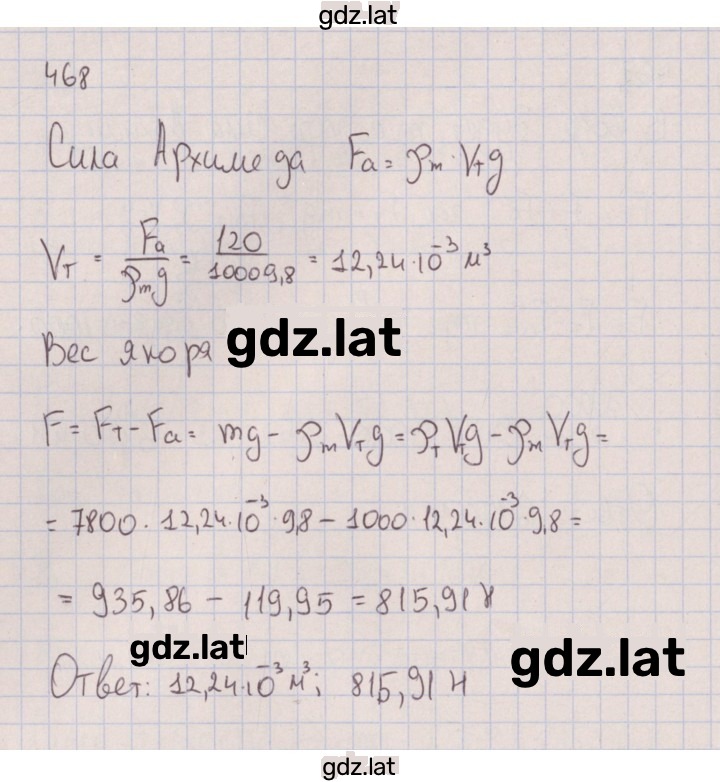 gdz.lat
468
Сила Архимеда Fа = ρm · Vт g
Vт = Fа / ρm g = 120 / 1000 9,8 = 12,24 · 10⁻³ м³
Вес якоря gdz.lat
F = Fт - Fа = mg - ρm Vт g = ρт Vт g - ρm Vт g =
= 7800 · 12,24 · 10⁻³ · 9,8 - 1000 · 12,24 · 10⁻³ · 9,8 =
= 935,86 - 119,95 = 815,91 Н
gdz.lat
gdz.lat
Ответ: 12,24 · 10⁻³ м³; 815,91 Н
gdz.lat